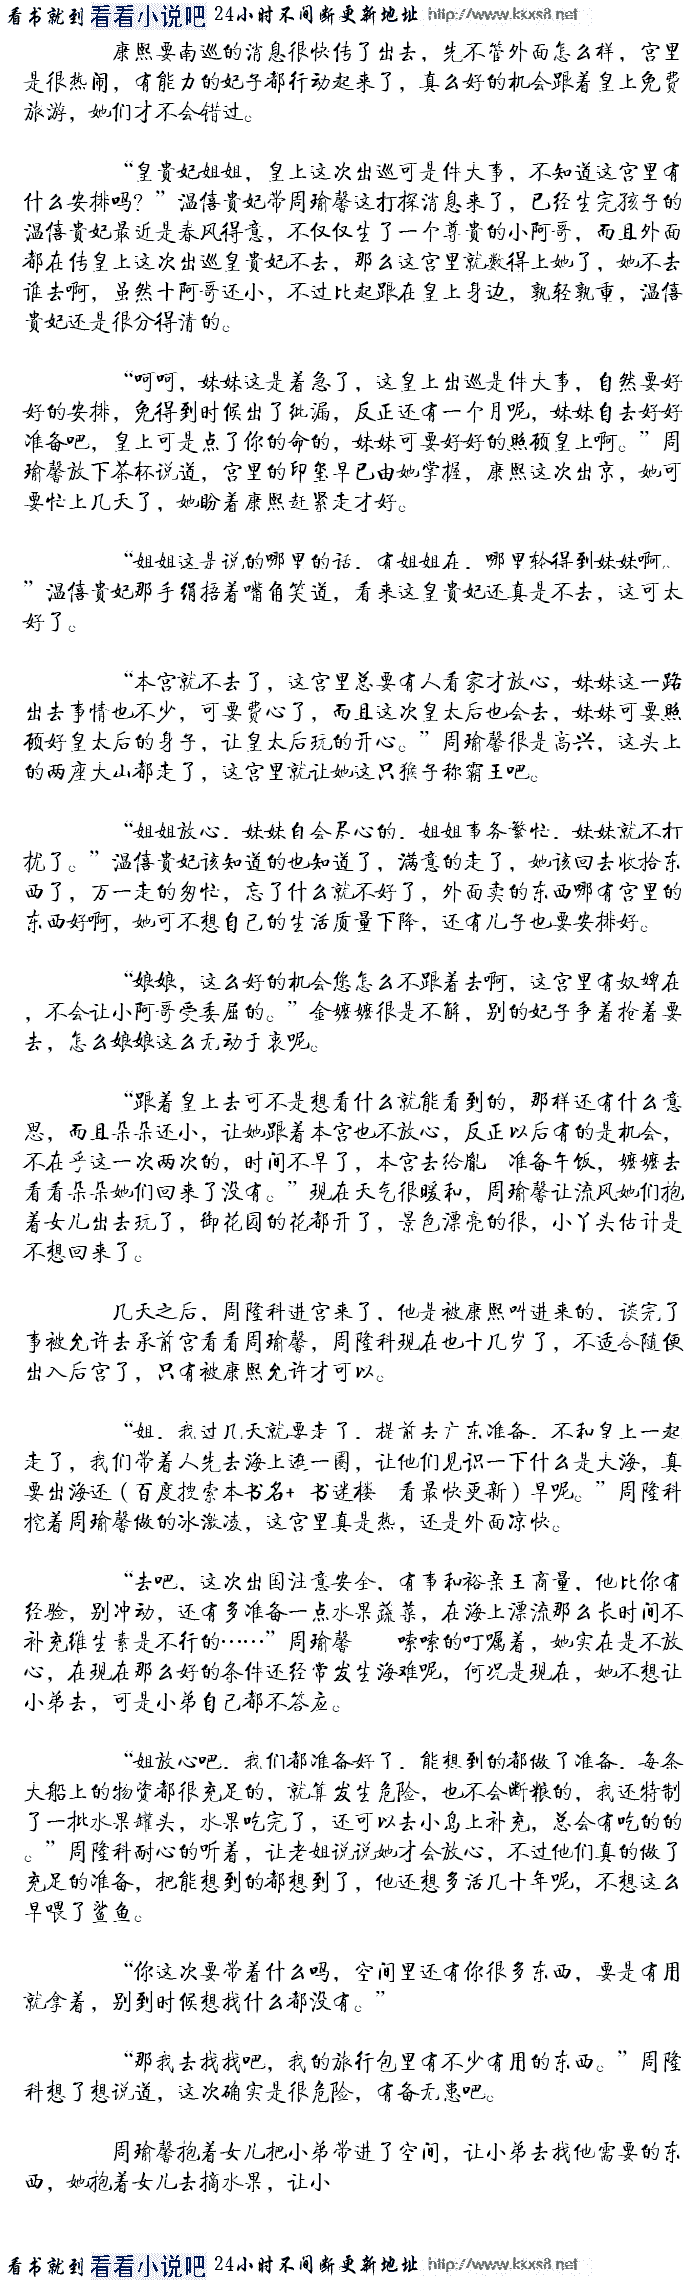 看书就到 看看小说吧 24小时不间断更新地址 http://www.kkxs8.net
康熙要南巡的消息很快传了出去，先不管外面怎么样，宫里
是很热闹，有能力的妃子都行动起来了，真么好的机会跟着皇上免费
旅游，她们才不会错过。
“皇贵妃姐姐，皇上这次出巡可是件大事，不知道这宫里有
什么安排吗？”温僖贵妃带周瑜馨这打探消息来了，已经生完孩子的
温僖贵妃最近是春风得意，不仅仅生了一个尊贵的小阿哥，而且外面
都在传皇上这次出巡皇贵妃不去，那么这宫里就数得上她了，她不去
谁去啊，虽然十阿哥还小，不过比起跟在皇上身边，孰轻孰重，温僖
贵妃还是很分得清的。
“呵呵，妹妹这是着急了，这皇上出巡是件大事，自然要好
好的安排，免得到时候出了纰漏，反正还有一个月呢，妹妹自去好好
准备吧，皇上可是点了你的命的，妹妹可要好好的照顾皇上啊。”周
瑜馨放下茶杯说道，宫里的印玺早已由她掌握，康熙这次出京，她可
要忙上几天了，她盼着康熙赶紧走才好。
“姐姐这是说的哪里的话，有姐姐在，哪里轮得到妹妹啊。
”温僖贵妃那手绢捂着嘴角笑道，看来这皇贵妃还真是不去，这可太
好了。
“本宫就不去了，这宫里总要有人看家才放心，妹妹这一路
出去事情也不少，可要费心了，而且这次皇太后也会去，妹妹可要照
顾好皇太后的身子，让皇太后玩的开心。”周瑜馨很是高兴，这头上
的两座大山都走了，这宫里就让她这只猴子称霸王吧。
“姐姐放心，妹妹自会尽心的，姐姐事务繁忙，妹妹就不打
扰了。”温僖贵妃该知道的也知道了，满意的走了，她该回去收拾东
西了，万一走的匆忙，忘了什么就不好了，外面卖的东西哪有宫里的
东西好啊，她可不想自己的生活质量下降，还有儿子也要安排好。
“娘娘，这么好的机会您怎么不跟着去啊，这宫里有奴婢在
，不会让小阿哥受委屈的。”金嬷嬷很是不解，别的妃子争着抢着要
去，怎么娘娘这么无动于衷呢。
“跟着皇上去可不是想看什么就能看到的，那样还有什么意
思，而且朵朵还小，让她跟着本宫也不放心，反正以后有的是机会，
不在乎这一次两次的，时间不早了，本宫去给胤 准备午饭，嬷嬷去
看看朵朵她们回来了没有。”现在天气很暖和，周瑜馨让流风她们抱
着女儿出去玩了，御花园的花都开了，景色漂亮的很，小丫头估计是
不想回来了。
几天之后，周隆科进宫来了，他是被康熙叫进来的，谈完了
事被允许去承前宫看看周瑜馨，周隆科现在也十几岁了，不适合随便
出入后宫了，只有被康熙允许才可以。
“姐，我过几天就要走了，提前去广东准备，不和皇上一起
走了，我们带着人先去海上逛一圈，让他们见识一下什么是大海，真
要出海还（百度搜索本书名+ 书迷楼 看最快更新）早呢。”周隆科
挖着周瑜馨做的冰激凌，这宫里真是热，还是外面凉快。
“去吧，这次出国注意安全，有事和裕亲王商量，他比你有
经验，别冲动，还有多准备一点水果蔬菜，在海上漂流那么长时间不
补充维生素是不行的……”周瑜馨 嗦嗦的叮嘱着，她实在是不放
心，在现在那么好的条件还经常发生海难呢，何况是现在，她不想让
小弟去，可是小弟自己都不答应。
“姐放心吧，我们都准备好了，能想到的都做了准备，每条
大船上的物资都很充足的，就算发生危险，也不会断粮的，我还特制
了一批水果罐头，水果吃完了，还可以去小岛上补充，总会有吃的的
。”周隆科耐心的听着，让老姐说说她才会放心，不过他们真的做了
充足的准备，把能想到的都想到了，他还想多活几十年呢，不想这么
早喂了鲨鱼。
“你这次要带着什么吗，空间里还有你很多东西，要是有用
就拿着，别到时候想找什么都没有。”
“那我去找找吧，我的旅行包里有不少有用的东西。”周隆
科想了想说道，这次确实是很危险，有备无患吧。
周瑜馨抱着女儿把小弟带进了空间，让小弟去找他需要的东
西，她抱着女儿去摘水果，让小
看书就到 看看小说吧 24小时不间断更新地址 http://www.kkxs8.net